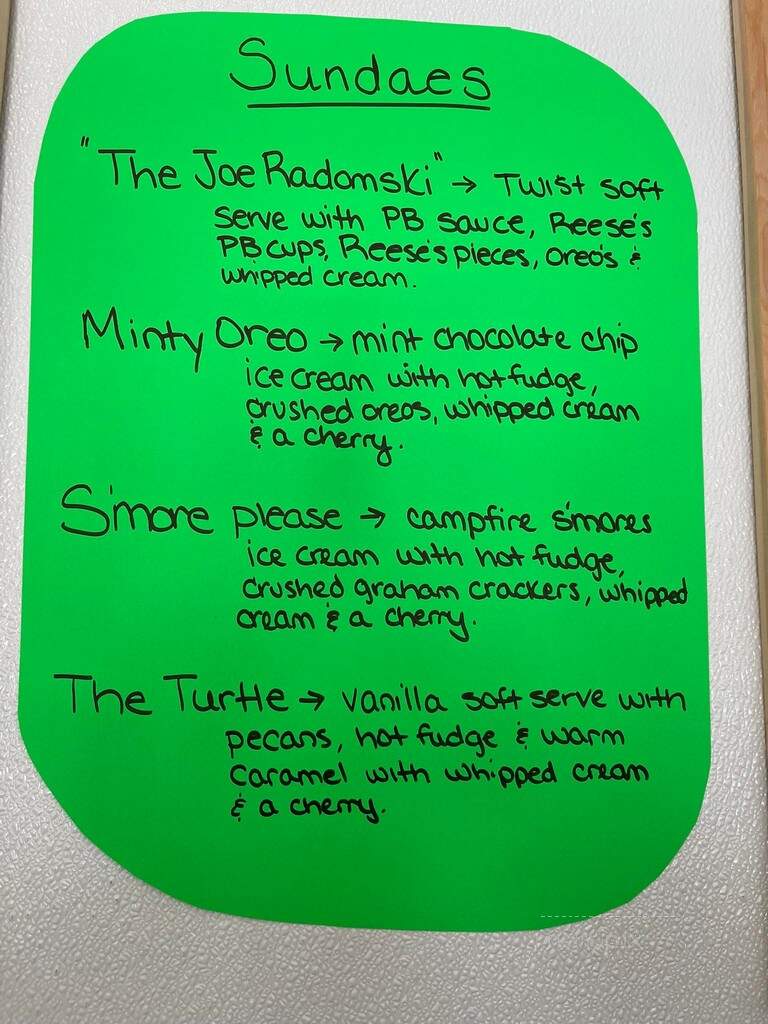 Sundaes
"The Joe Radomski" → Twist soft
serve with PB sauce, Reese's
PB cups, Reese's pieces, oreo's &
whipped cream.
Minty Oreo → mint chocolate chip
ice cream with hot fudge,
crushed oreos, whipped cream
& a cherry.
S'more please → campfire s'mores
ice cream with hot fudge,
crushed graham crackers, whipped
cream & a cherry.
The Turtle → vanilla soft serve with
pecans, hot fudge & warm
caramel with whipped cream
& a cherry.